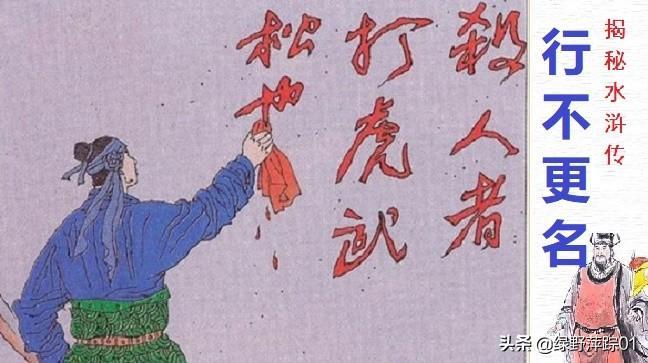 殺人者
打虎武
松也
行不更名
揭秘水浒传
头条@绿野萍踪01